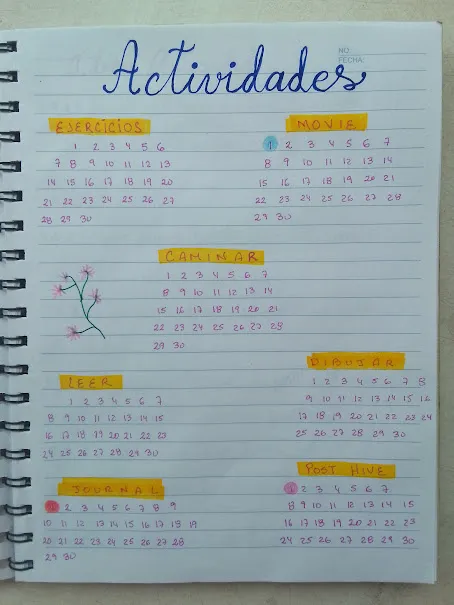 Actividades
NO.
FECHA:
EJERCÍCIOS
1 2 3 4 5 6
7 8 9 10 11 12 13
14 15 16 17 18 19 20
21 22 23 24 25 26 27
28 29 30
MOVIE
1 2 3 4 5 6 7
8 9 10 11 12 13 14
15 16 17 18 19 20 21
22 23 24 25 26 27 28
29 30
CAMINAR
1 2 3 4 5 6 7
8 9 10 11 12 13 14
15 16 17 18 19 20 21
22 23 24 25 26 27 28
29 30
LEER
1 2 3 4 5 6 7
8 9 10 11 12 13 14 15
16 17 18 19 20 21 22 23
24 25 26 27 28 29 30
DIBUJAR
1 2 3 4 5 6 7 8
9 10 11 12 13 14 15 16
17 18 19 20 21 22 23 24
25 26 27 28 29 30
JOURNAL
1 2 3 4 5 6 7 8 9
10 11 12 13 14 15 16 17 18 19
20 21 22 23 24 25 26 27 28
29 30
POST HIVE
1 2 3 4 5 6 7
8 9 10 11 12 13 14 15
16 17 18 19 20 21 22 23
24 25 26 27 28 29 30